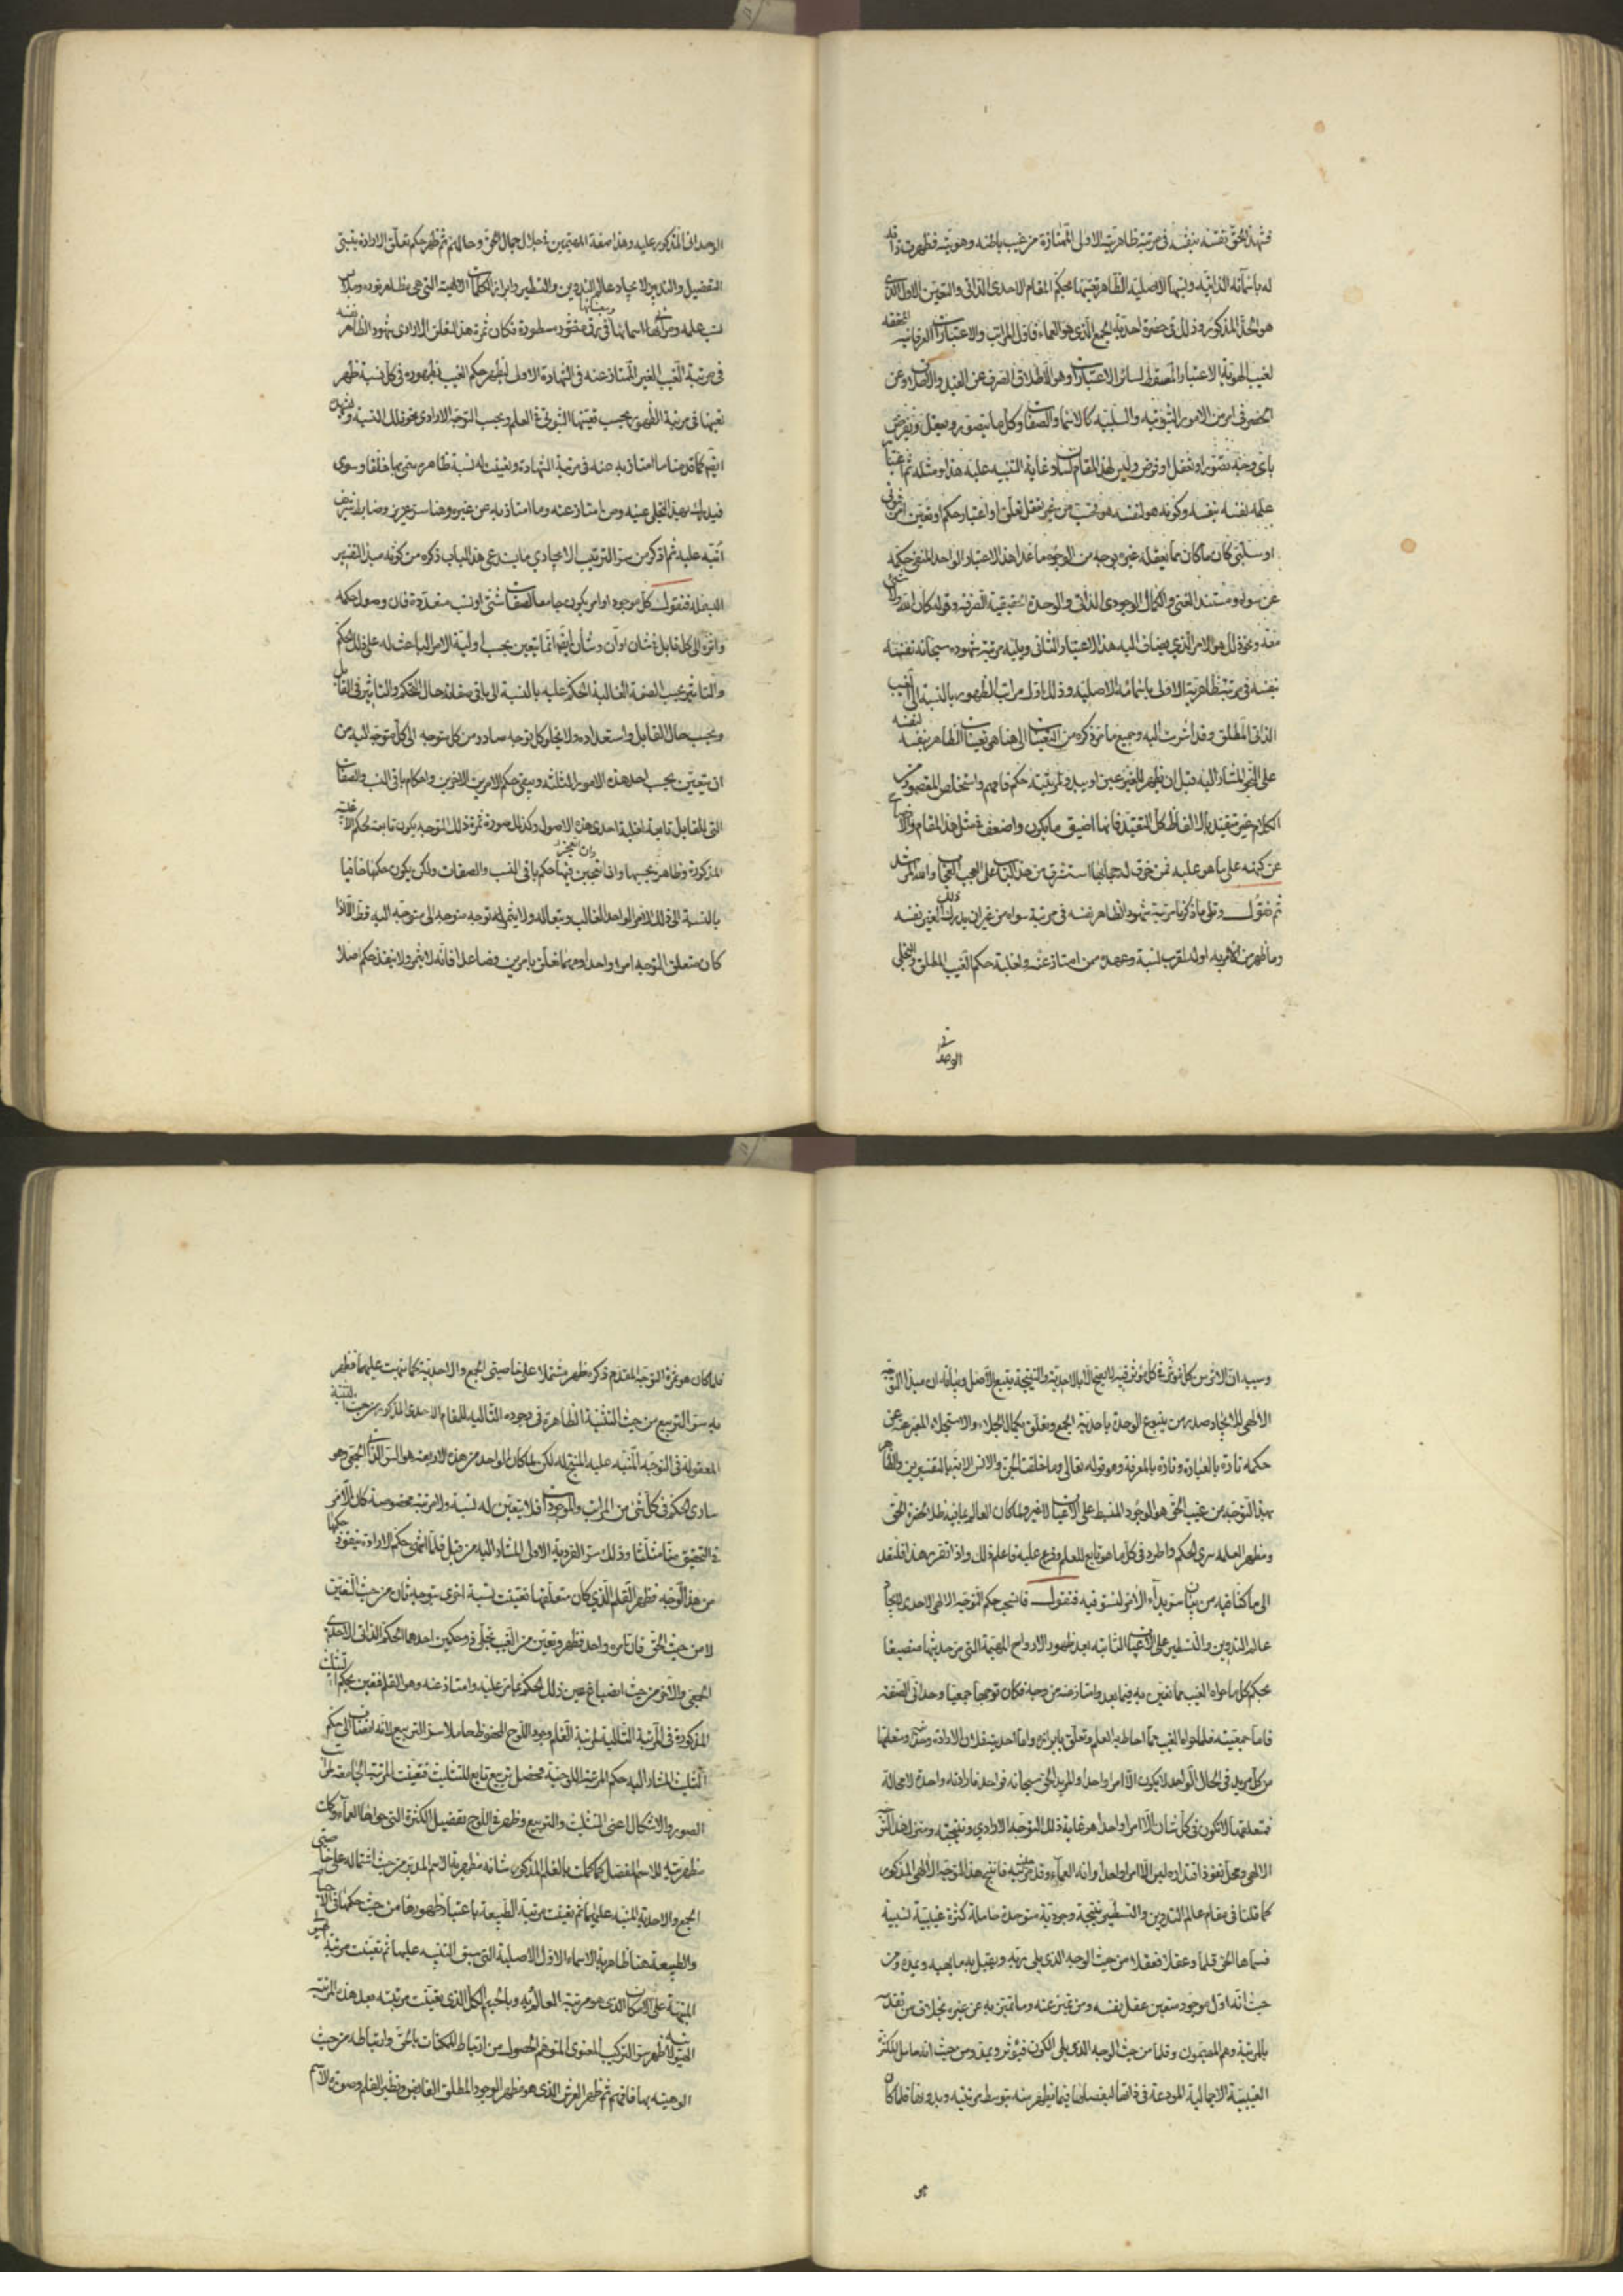 فشهد الحق نفسه بنفسه في مرتبة ظاهريته الاولى الممتازة من غيب باطنه وهويته فظهرت ذاته
له باسمائه الذاتية ونسبها الاصلية الظاهر تعينها بحكم المقام الاحدي الذاتي والتعين الاول الذي
هو الحد المذكور وذلك في حضرة احدية الجمع الذي هو العماء فاول المراتب والاعتبارات العرفانية المحققة
لغيب الهوية الاعتبار المسقط لسائر الاعتبارات وهو الاطلاق الصرف عن القيد والاطلاق وعن
الحصر في امر من الامور الثبوتية والسلبية كالاسماء والصفات وكل ما يتصور ويعقل ويفرض
باي وجه تصور او تعقل او فرض وليس لهذا المقام لسان وغاية التنبيه عليه هذا ومثله ثم اعتبار
علمه نفسه بنفسه وكونه هو لنفسه هو فحسب من غير تعقل تعلق او اعتبار حكم او تعين امر ثبوتي
او سلبي كان ما كان مما يعقله غيره بوجه من الوجوه ما عدا هذا الاعتبار الواحد المنفي حكمه
عن سواه ومستند الغنى والكمال الوجودي الذاتي والوحدة الحقيقية الصرفة وقوله كان الله ولا شيء
معه ونحو ذلك هو الامر الذي يضاف اليه هذا الاعتبار الثاني ويليه مرتبة شهوده سبحانه نفسه
بنفسه في مرتبة ظاهريته الاولى باسمائه الاصلية وذلك اول مراتب الظهور بالنسبة الى الغيب
الذاتي المطلق وقد اشرت اليه وجميع ما مر ذكره من التعينات الى هنا هي تعينات الظاهر بنفسه لنفسه
على النحو المشار اليه قبل ان يظهر للغير عين او يبدو لمرتبته حكم فافهم واستخلص المقصود من
الكلام غير متقيد بالالفاظ كل التقيد فانها اضيق ما يكون واضعف في مثل هذا المقام والافصاح
عن كنهه على ما هو عليه فمن خرق له حجابها استشرف من هذا الباب على العجب العجاب والله المرشد
ثم نقول وتلى ما ذكرنا مرتبة شهود الظاهر نفسه في مرتبة سواه من غير ان يدرك ذلك الغير نفسه
وما ظهر من الامر به او له لقرب نسبة وعهده ممن امتاز عنه ولغلبة حكم الغيب المطلق والتجلي
الوحداني
الوحداني المذكور عليه وهذا صفة المهيمين في جلال جمال الحق وحالهم ثم ظهر حكم تعلق الارادة بنسبتي
التفصيل والتدبير لايجاد عالم التدوين والتسطير وابراز الكلمات الالهية التي هي مظاهر نوره وملابس
نسب علمه ومرائي اسمائه ومعيناتها في رق منشور مسطورة فكان ثمرة هذا التعلق الارادي شهود الظاهر نفسه
في مرتبة الغيب الغير الممتاز عنه في الشهادة الاولى ليظهر حكم الغيب بظهوره في كل نسبة ظهر
تعينها في مرتبة الظهور بحسب تعينها الثبوتي في العلم وبحسب التوجه الارادي نحو تلك النسبة وليشهده
ايضا كما قدمنا ما امتاز به عنه في مرتبة الشهادة وتعينت له نسبة ظاهرة سمي بها خلقا وسوى
فيدرك بهذا التجلي عينه ومن امتاز عنه وما امتاز به عن غيره وهنا سر عزيز وضابط شريف
انبه عليه ثم اذكر من سر الترتيب الايجادي ما يستدعي هذا الباب ذكره من كونه مبدأ لتفسير
البسملة فنقول كل موجود او امر يكون جامعا لصفات شتى او نسب متعددة فان وصول حكمه
واثره الى كل قابل في شان او آن وشان ايضا انما يتعين بحسب اولية الامر الباعث له على ذلك الحكم
والتاثير بحسب الصفة الغالبة الحكم عليه بالنسبة الى باقي صفاته حال التحكم والتاثير في القابل
وبحسب حال القابل واستعداده ولا يخلو كل توجه صادر من كل متوجه الى كل متوجه اليه من
ان يتعين بحسب احد هذه الامور الثلثة ويبقى حكم الامرين الاخرين واحكام باقي النسب والصفات
التي للقابل تابعة لغلبة احدى هذه الاصول وكذلك صورة ثمرة ذلك التوجه يكون تابعة لحكم الاغلبية
المذكورة وظاهرة بحسبها وان انعجن فيها حكم باقي النسب والصفات ولكن يكون حكمها خافيا
بالنسبة الى ذلك الامر الواحد الغالب وتبعا له ولا يثمر له توجه متوجه الى متوجه اليه قط الا اذا
كان متعلق التوجه امرا واحدا ومهما تعلق بامرين فصاعدا فانه لا يثمر ولا ينفذ له حكم اصلا
وسببه ان الاثر من كل مؤثر في كل مؤثر فيه لا يصح الا بالاحدية والنتيجة يتبع الاصل وبيانه ان مبدأ التوجه
الالهي للايجاد صدر من ينبوع الوحدة باحدية الجمع وتعلق بكمال الجلاء والاستجلاء المعبر عن
حكمه تارة بالعبادة وتارة بالمعرفة وهو قوله تعالى وما خلقت الجن والانس الاية بالتفسيرين والظاهر
بهذا التوجه من غيب الحق هو الوجود المنبسط على الاعيان لا غير ولما كان العالم بما فيه ظلا لحضرة الحق
ومظهرا لعلمه سرى الحكم واطرد في كل ما هو تابع للعلم وفرع عليه فاعلم ذلك واذا تقرر هذا فلنعد
الى ما كنا فيه من بيان سر بداء الامر لنستوفيه فنقول فانسحب حكم التوجه الالهي الاحدي لايجاد
عالم التدوين والتسطير على الاعيان الثابتة بعد ظهور الارواح المهيمة التي مر حديثها منصبغا
بحكم كل ما حواه الغيب مما تعين به فيما بعد وامتاز عنه من وجه فكان توجها جمعيا وحداني الصفة
فاما جمعيته فلما حواه الغيب مما احاط به العلم وتعلق بابرازه واما احديته فلان الارادة وحدانية ومتعلقها
من كل مريد في الحال الواحد لا يكون الا امرا واحدا والمريد الحق سبحانه واحد فارادته واحدة لا محالة
فمتعلقها لا يكون في كل شان الا امرا واحدا هو غاية ذلك التوجه الارادي ونتيجته ومنزل هذا التوجه
الالهي ومحل نفوذ اقتداره ليس الا امرا واحدا وانه العماء وقد مر حديثه فانتج هذا التوجه الالهي المذكور
كما قلنا في مقام عالم التدوين والتسطير نتيجة وجودية متوحدة حاملة كثرة غيبية نسبية
فسماها الحق قلما وعقلا فعقلا من حيث الوجه الذي يلي ربه ويقبل به ما يهبه ويمده ومن
حيث انه اول موجود متعين عقل نفسه ومن تميز عنه وما تميز به عن غيره بخلاف من تقدمه
بالمرتبة وهم المهيمون وقلما من حيث الوجه الذي يلي الكون فيؤثر ويمد ومن حيث انه حامل للكثرة
الغيبية الاجمالية المودعة في ذاته ليفصلها فيما يظهر منه بتوسط مرتبته وبدونها فلما كان
هو
فلما كان هو ثمرة التوجه المقدم ذكره ظهر مشتملا على خاصيتي الجمع والاحدية كما نبهت عليهما فظهر
به سر التربيع من حيث التثنية الظاهرة في وجوده التالية للمقام الاحدي المذكور ومن حيث التثنية
المعقولة في التوجه المنبه عليه المنتج له لكن لما كان الواحد من هذه الاربعة هو السر الذاتي الجمعي وهو
ساري الحكم في كل شيء من المراتب والموجودات فلا يتعين له نسبة ولا مرتبة مخصوصة كان الامر
في التحقيق مثلثا وذلك سر الفردية الاولى المشار اليه من قبل فلما انتهى حكم الارادة بنفوذ حكمها
من هذا الوجه فظهر القلم الذي كان متعلقها تعينت نسبة اخرى بتوجه ثان من حيث التعين
لا من حيث الحق فان امره واحد فظهر وتعين من الغيب تجلي ذو حكمين احدهما الحكم الذاتي الاحدي
الجمعي والاخر من حيث انصباغ عين ذلك الحكم بما مر عليه وامتاز عنه وهو القلم فتعين بحكم التثليث
المذكورة في المرتبة التالية لمرتبة القلم وجود اللوح المحفوظ حاملا سر التربيع لانه انضاف الى حكم
التثليث المشار اليه حكم المرتبة اللوحية فحصل تربيع تابع للتثليث فتعينت المرتبة الجامعة لمراتب
الصور والاشكال اعني التثليث والتربيع وظهر في اللوح تفصيل الكثرة التي حواها العماء وكانت
مظهريته للاسم المفصل كما كانت بالقلم المذكور شانه مظهرية الاسم المدبر من حيث اشتماله على خاصيتي
الجمع والاحدية المنبه عليهما ثم تعينت مرتبة الطبيعة باعتبار ظهورها من حيث حكمها في الاجسام
والطبيعة هنا ظاهرية الاسماء الاول الاصلية التي سبق التنبيه عليها ثم تعينت مرتبة الهيولى
المنبهة على الامكان الذي هو مرتبة العالم وبه وبالجسم الكل الذي تعينت مرتبته بعد هذه المرتبة
الهيولانية ظهر سر التركيب المعنوي المتوهم الحصول من ارتباط الممكنات بالحق وارتباطه من حيث
الوهيته بها فافهم ثم ظهر العرش الذي هو مظهر الوجود المطلق الفائض ونظير القلم وصورة الاسم